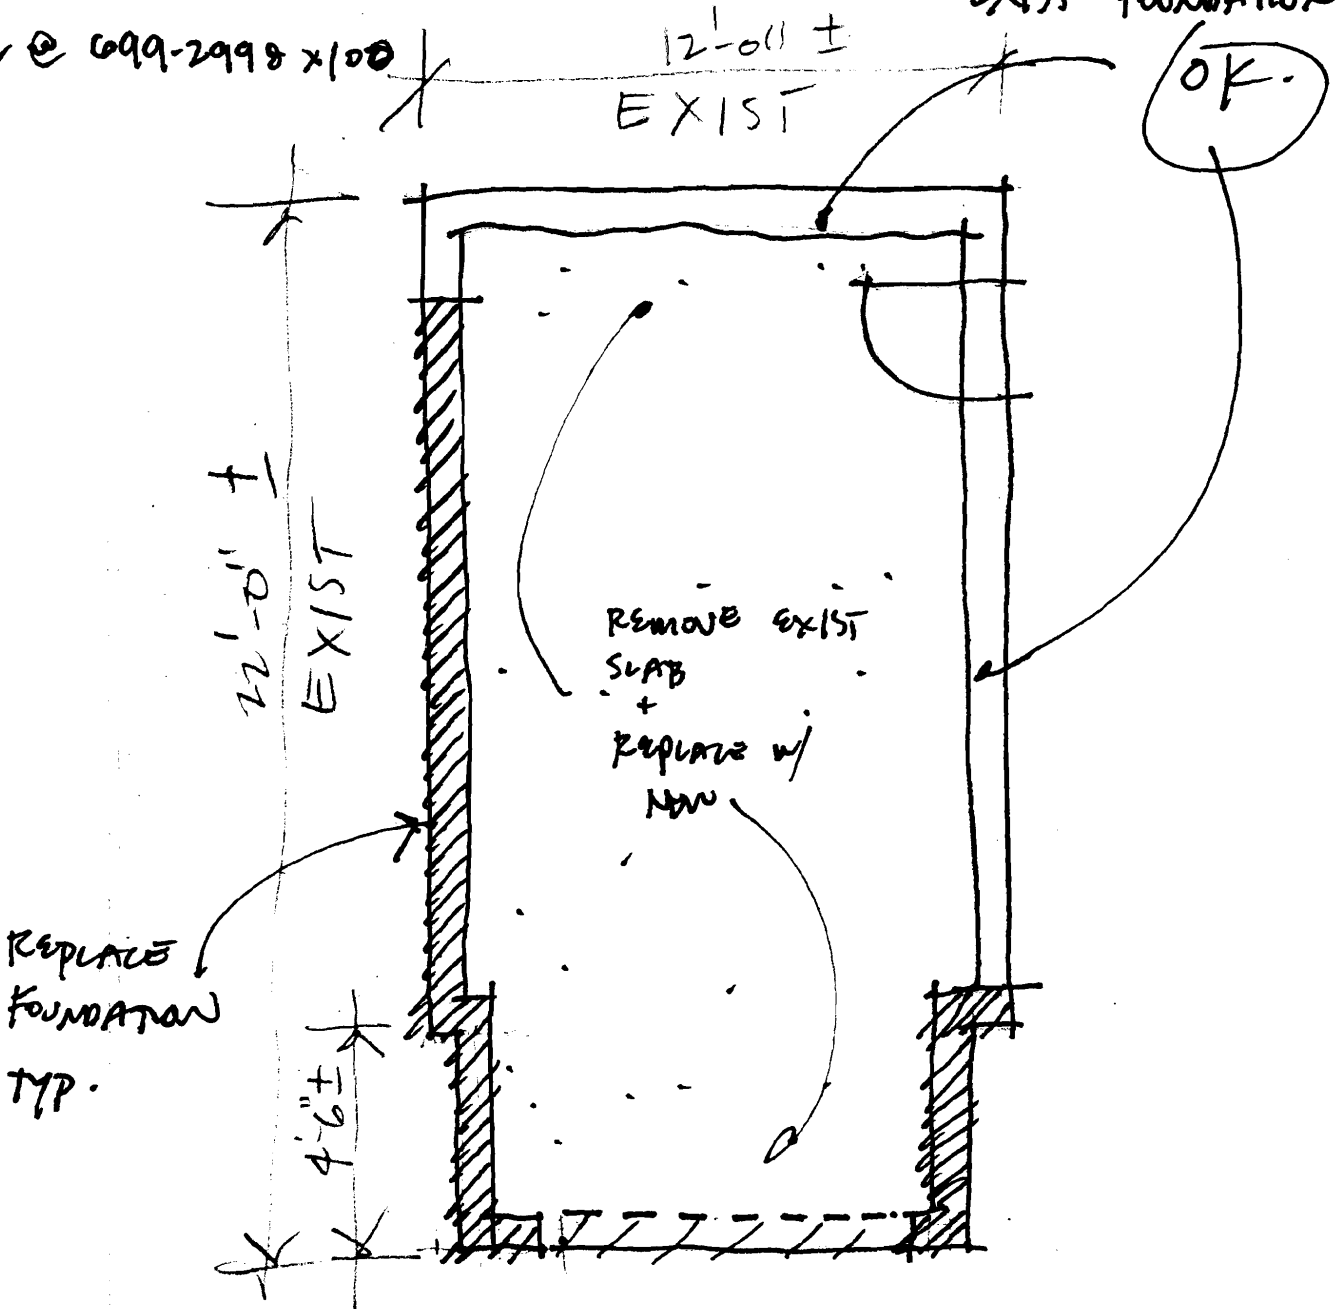 @ 699-2998 x100
EXIST FOUNDATION
OK.
12'-0" ±
EXIST
22'-0" ±
EXIST
REMOVE EXIST
SLAB
+
REPLACE W/
NEW
REPLACE
FOUNDATION
TYP.
4'-6" ±